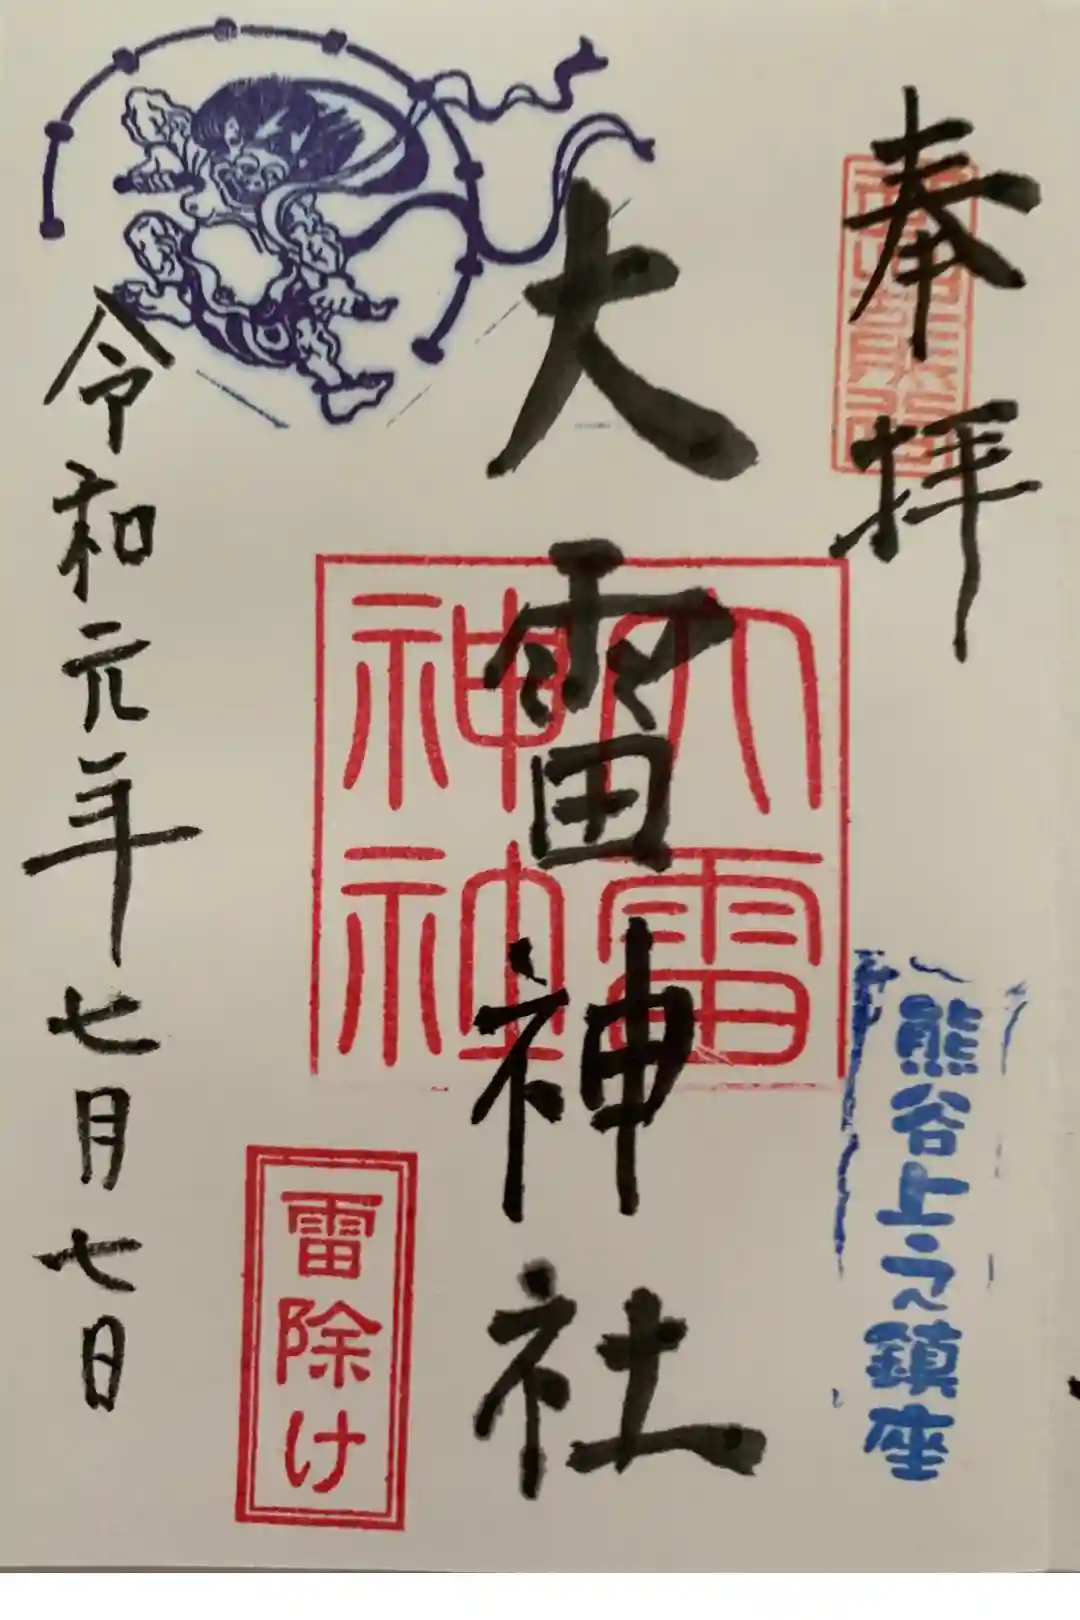 奉拝
熊谷上之鎮座
大雷神社
大雷
神社
雷除け
令和元年七月七日